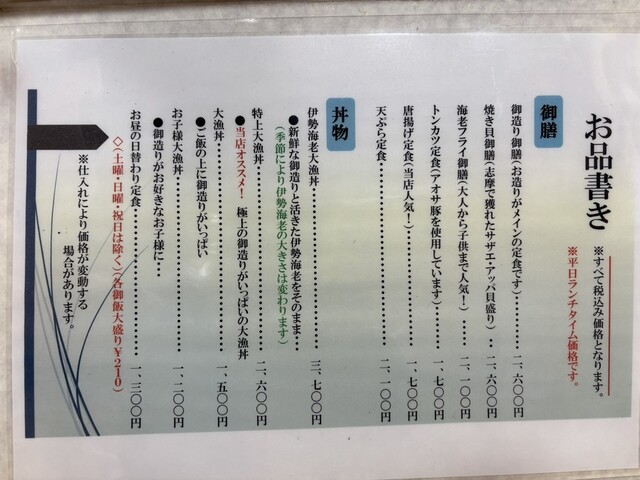 お品書き
※すべて税込み価格となります。
※平日ランチタイム価格です。
御膳
御造り御膳(お造りがメインの定食です)・・・二、六〇〇円
焼き貝御膳(志摩で獲れたサザエ・アッパ貝盛り)・・二、六〇〇円
海老フライ御膳(大人から子供まで人気!)・・・・二、一〇〇円
トンカツ定食(アオサ豚を使用しています)・・・・一、七〇〇円
唐揚げ定食(当店人気!)・・・・・・・・・・一、七〇〇円
天ぷら定食・・・・・・・・・・・・・・・・二、一〇〇円
丼物
伊勢海老大漁丼・・・・・・・・・・・・・・三、七〇〇円
●新鮮な御造りと活きた伊勢海老をそのまま・・
(季節により伊勢海老の大きさは変わります)
特上大漁丼・・・・・・・・・・・・・・・・二、六〇〇円
●当店オススメ! 極上の御造りがいっぱいの大漁丼
大漁丼・・・・・・・・・・・・・・・・・・一、五〇〇円
●ご飯の上に御造りがいっぱい
お子様大漁丼・・・・・・・・・・・・・・・一、二〇〇円
●御造りがお好きなお子様に・・・
お昼の日替わり定食・・・・・・・・・・・・一、三〇〇円
◇(土曜・日曜・祝日は除く)(各御飯大盛り¥210)
※仕入れにより価格が変動する
場合があります。